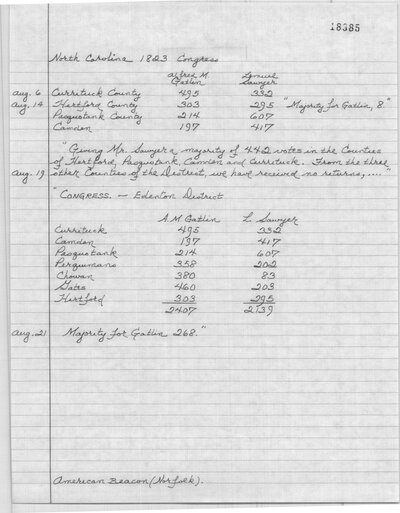 18385
North Carolina 1823 Congress
Alfred M. Gatlin Lemuel Sawyer
Aug. 6 Currituck County 495 332
Aug. 14 Hertford County 303 295 "Majority for Gatlin, 8."
Pasquotank County 214 607
Camden 197 417
"Giving Mr. Sawyer a majority of 442 votes in the Counties
of Hertford, Pasquotank, Camden and Currituck. From the three
Aug. 19 other Counties of the District, we have received no returns,...."
"CONGRESS. — Edenton District
A M Gatlin L. Sawyer
Currituck 495 332
Camden 197 417
Pasquotank 214 607
Perquimans 358 202
Chowan 380 83
Gates 460 203
Hertford 303 295
2407 2139
Aug. 21 Majority for Gatlin 268."
American Beacon (Norfolk).